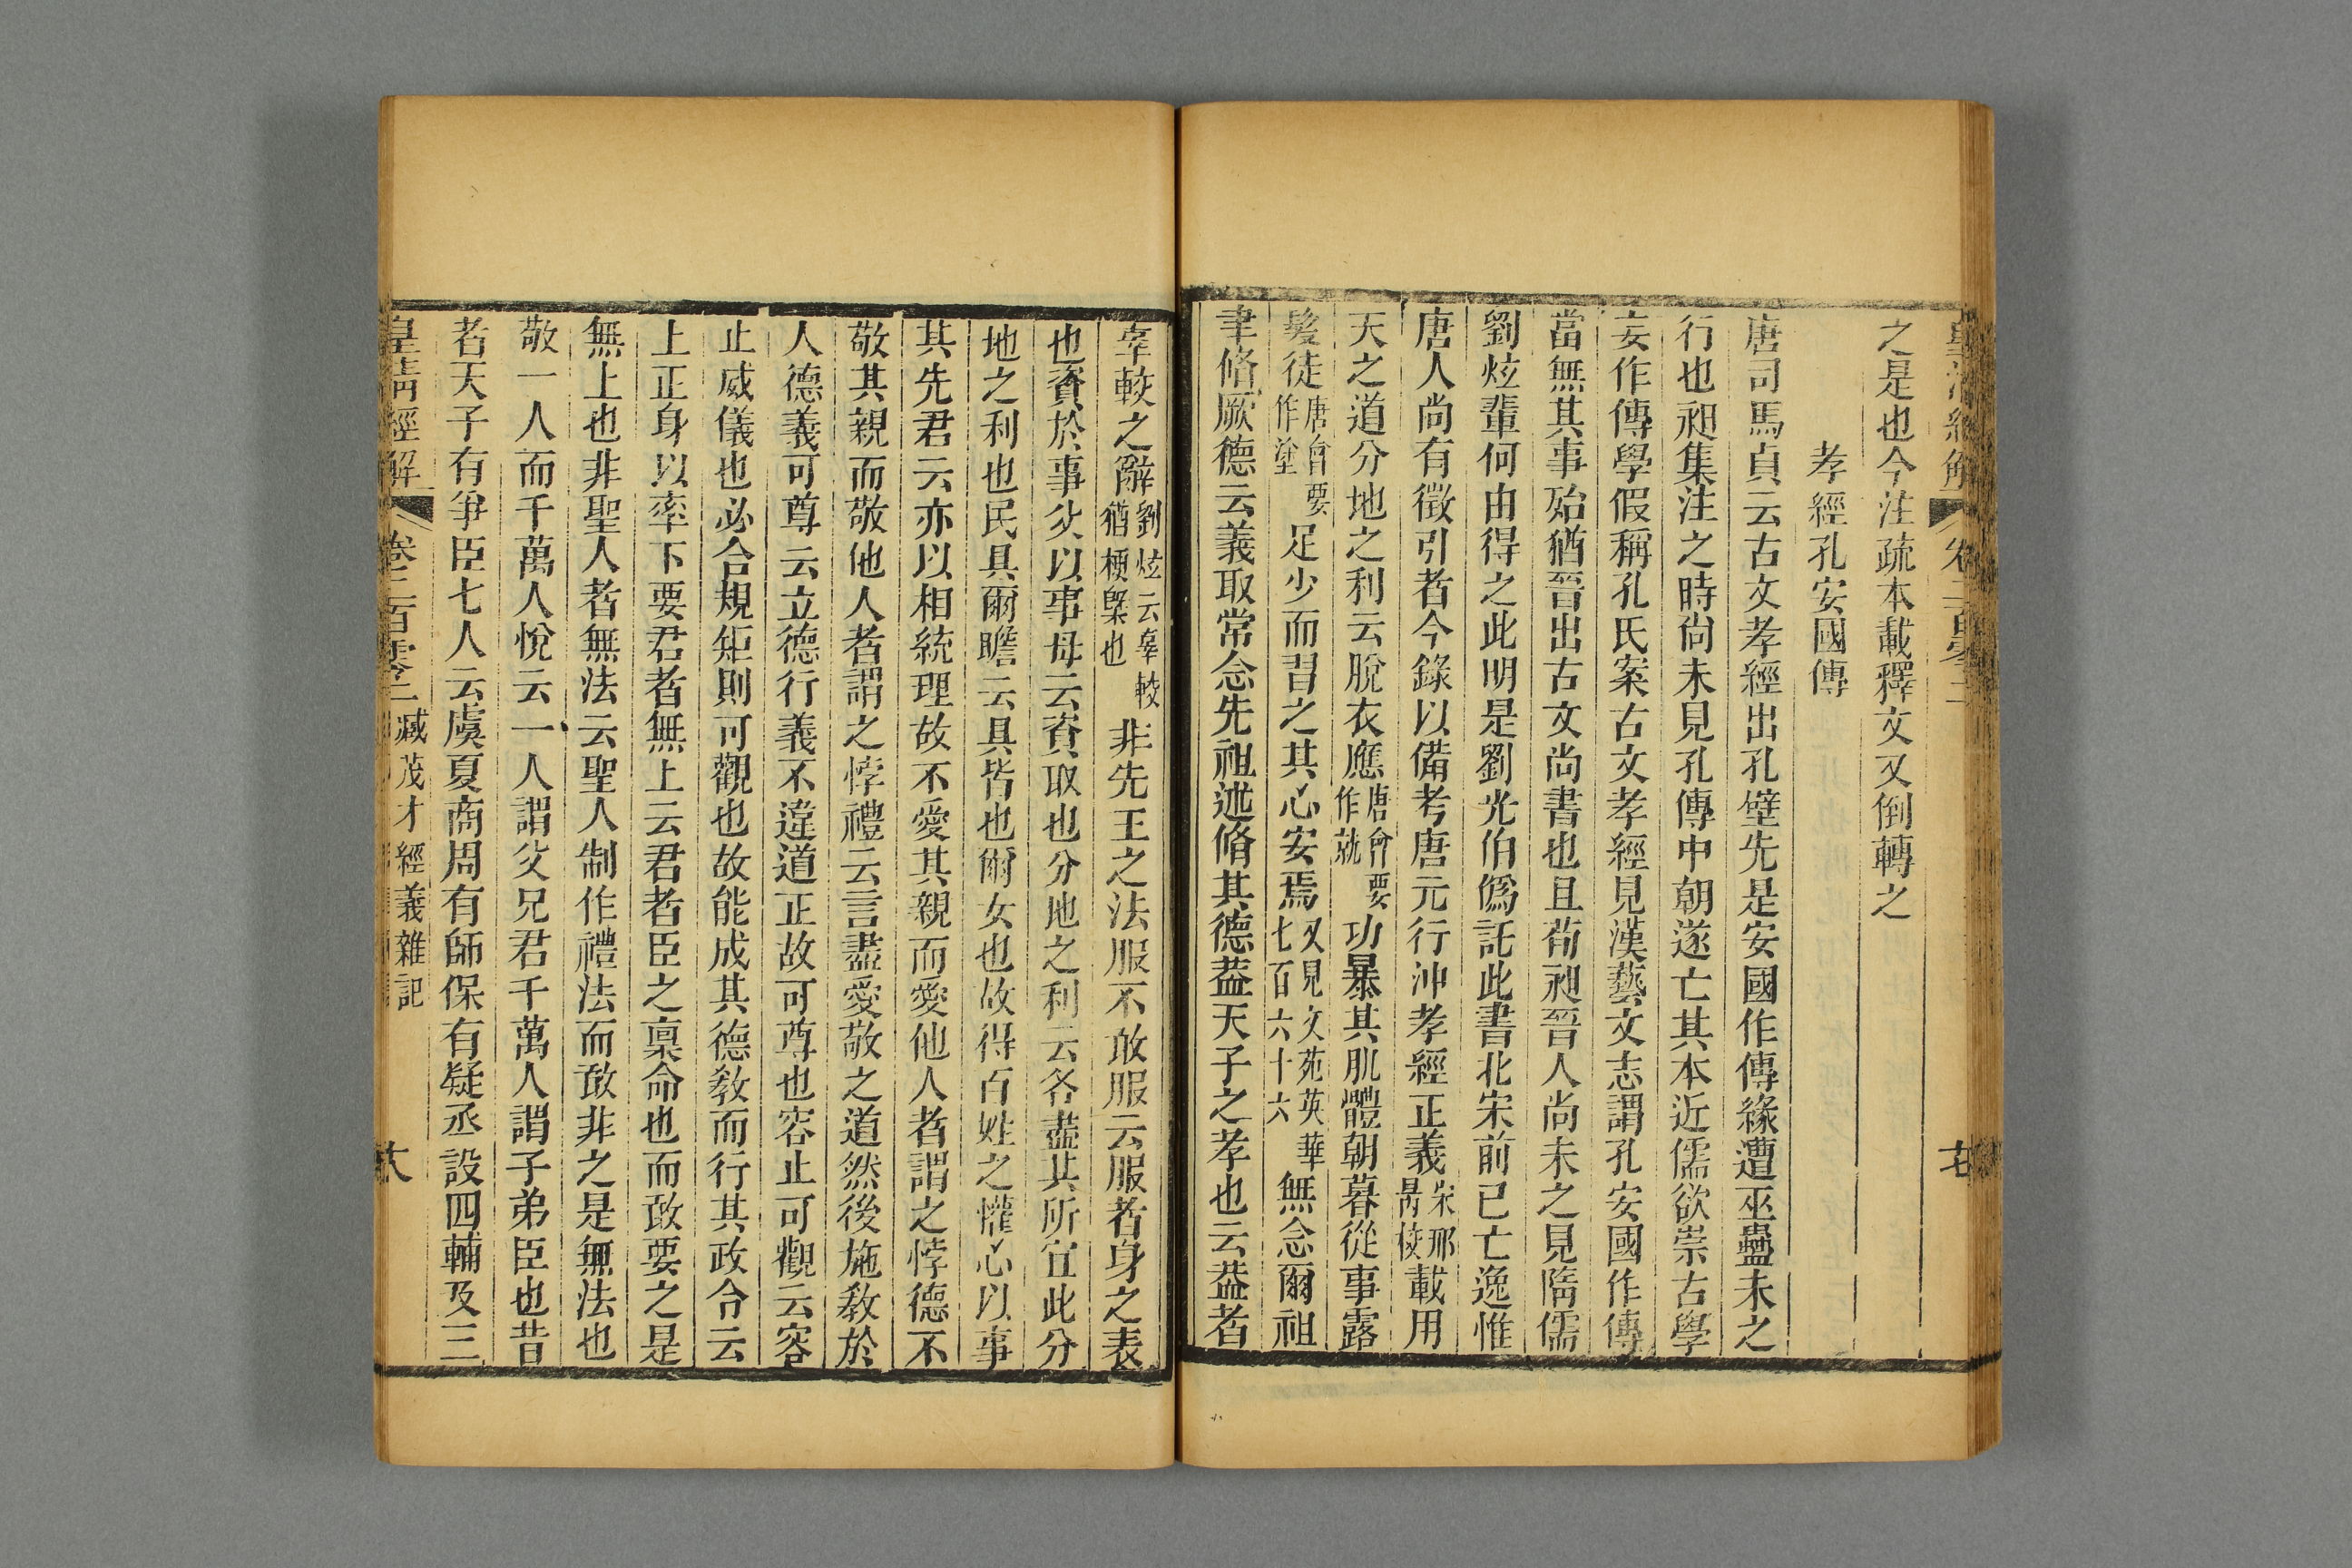 之是也今注疏本載釋文又倒轉之
孝經孔安國傳
唐司馬貞云古文孝經出孔壁先是安國作傳緣遭巫蠱未之
行也昶集注之時尚未見孔傳中朝遂亡其本近儒欲崇古學
妄作傳學假稱孔氏案古文孝經見漢藝文志謂孔安國作傳
當無其事殆猶晉出古文尚書也且荀昶晉人尚未之見隋儒
劉炫輩何由得之此明是劉光伯僞託此書北宋前已亡逸惟
唐人尚有徵引者今錄以備考唐元行沖孝經正義宋邢昺校載用
天之道分地之利云脫衣應唐會要作就功暴其肌體朝暮從事露
髮徒唐會要作塗足少而習之其心安焉又見文苑英華七百六十六無念爾祖
聿脩厥德云義取常念先祖述脩其德葢天子之孝也云葢者
辜較之辭劉炫云辜較猶梗槩也非先王之法服不敢服云服者身之表
也資於事父以事母云資取也分地之利云各盡其所宜此分
地之利也民具爾瞻云具皆也爾女也故得百姓之懽心以事
其先君云亦以相統理故不愛其親而愛他人者謂之悖德不
敬其親而敬他人者謂之悖禮云言盡愛敬之道然後施敎於
人德義可尊云立德行義不違道正故可尊也容止可觀云容
止威儀也必合規矩則可觀也故能成其德敎而行其政令云
上正身以率下要君者無上云君者臣之稟命也而敢要之是
無上也非聖人者無法云聖人制作禮法而敢非之是無法也
敬一人而千萬人悅云一人謂父兄君千萬人謂子弟臣也昔
者天子有爭臣七人云虞夏商周有師保有疑丞設四輔及三
皇清經解 卷二百零二 臧茂才經義雜記 大